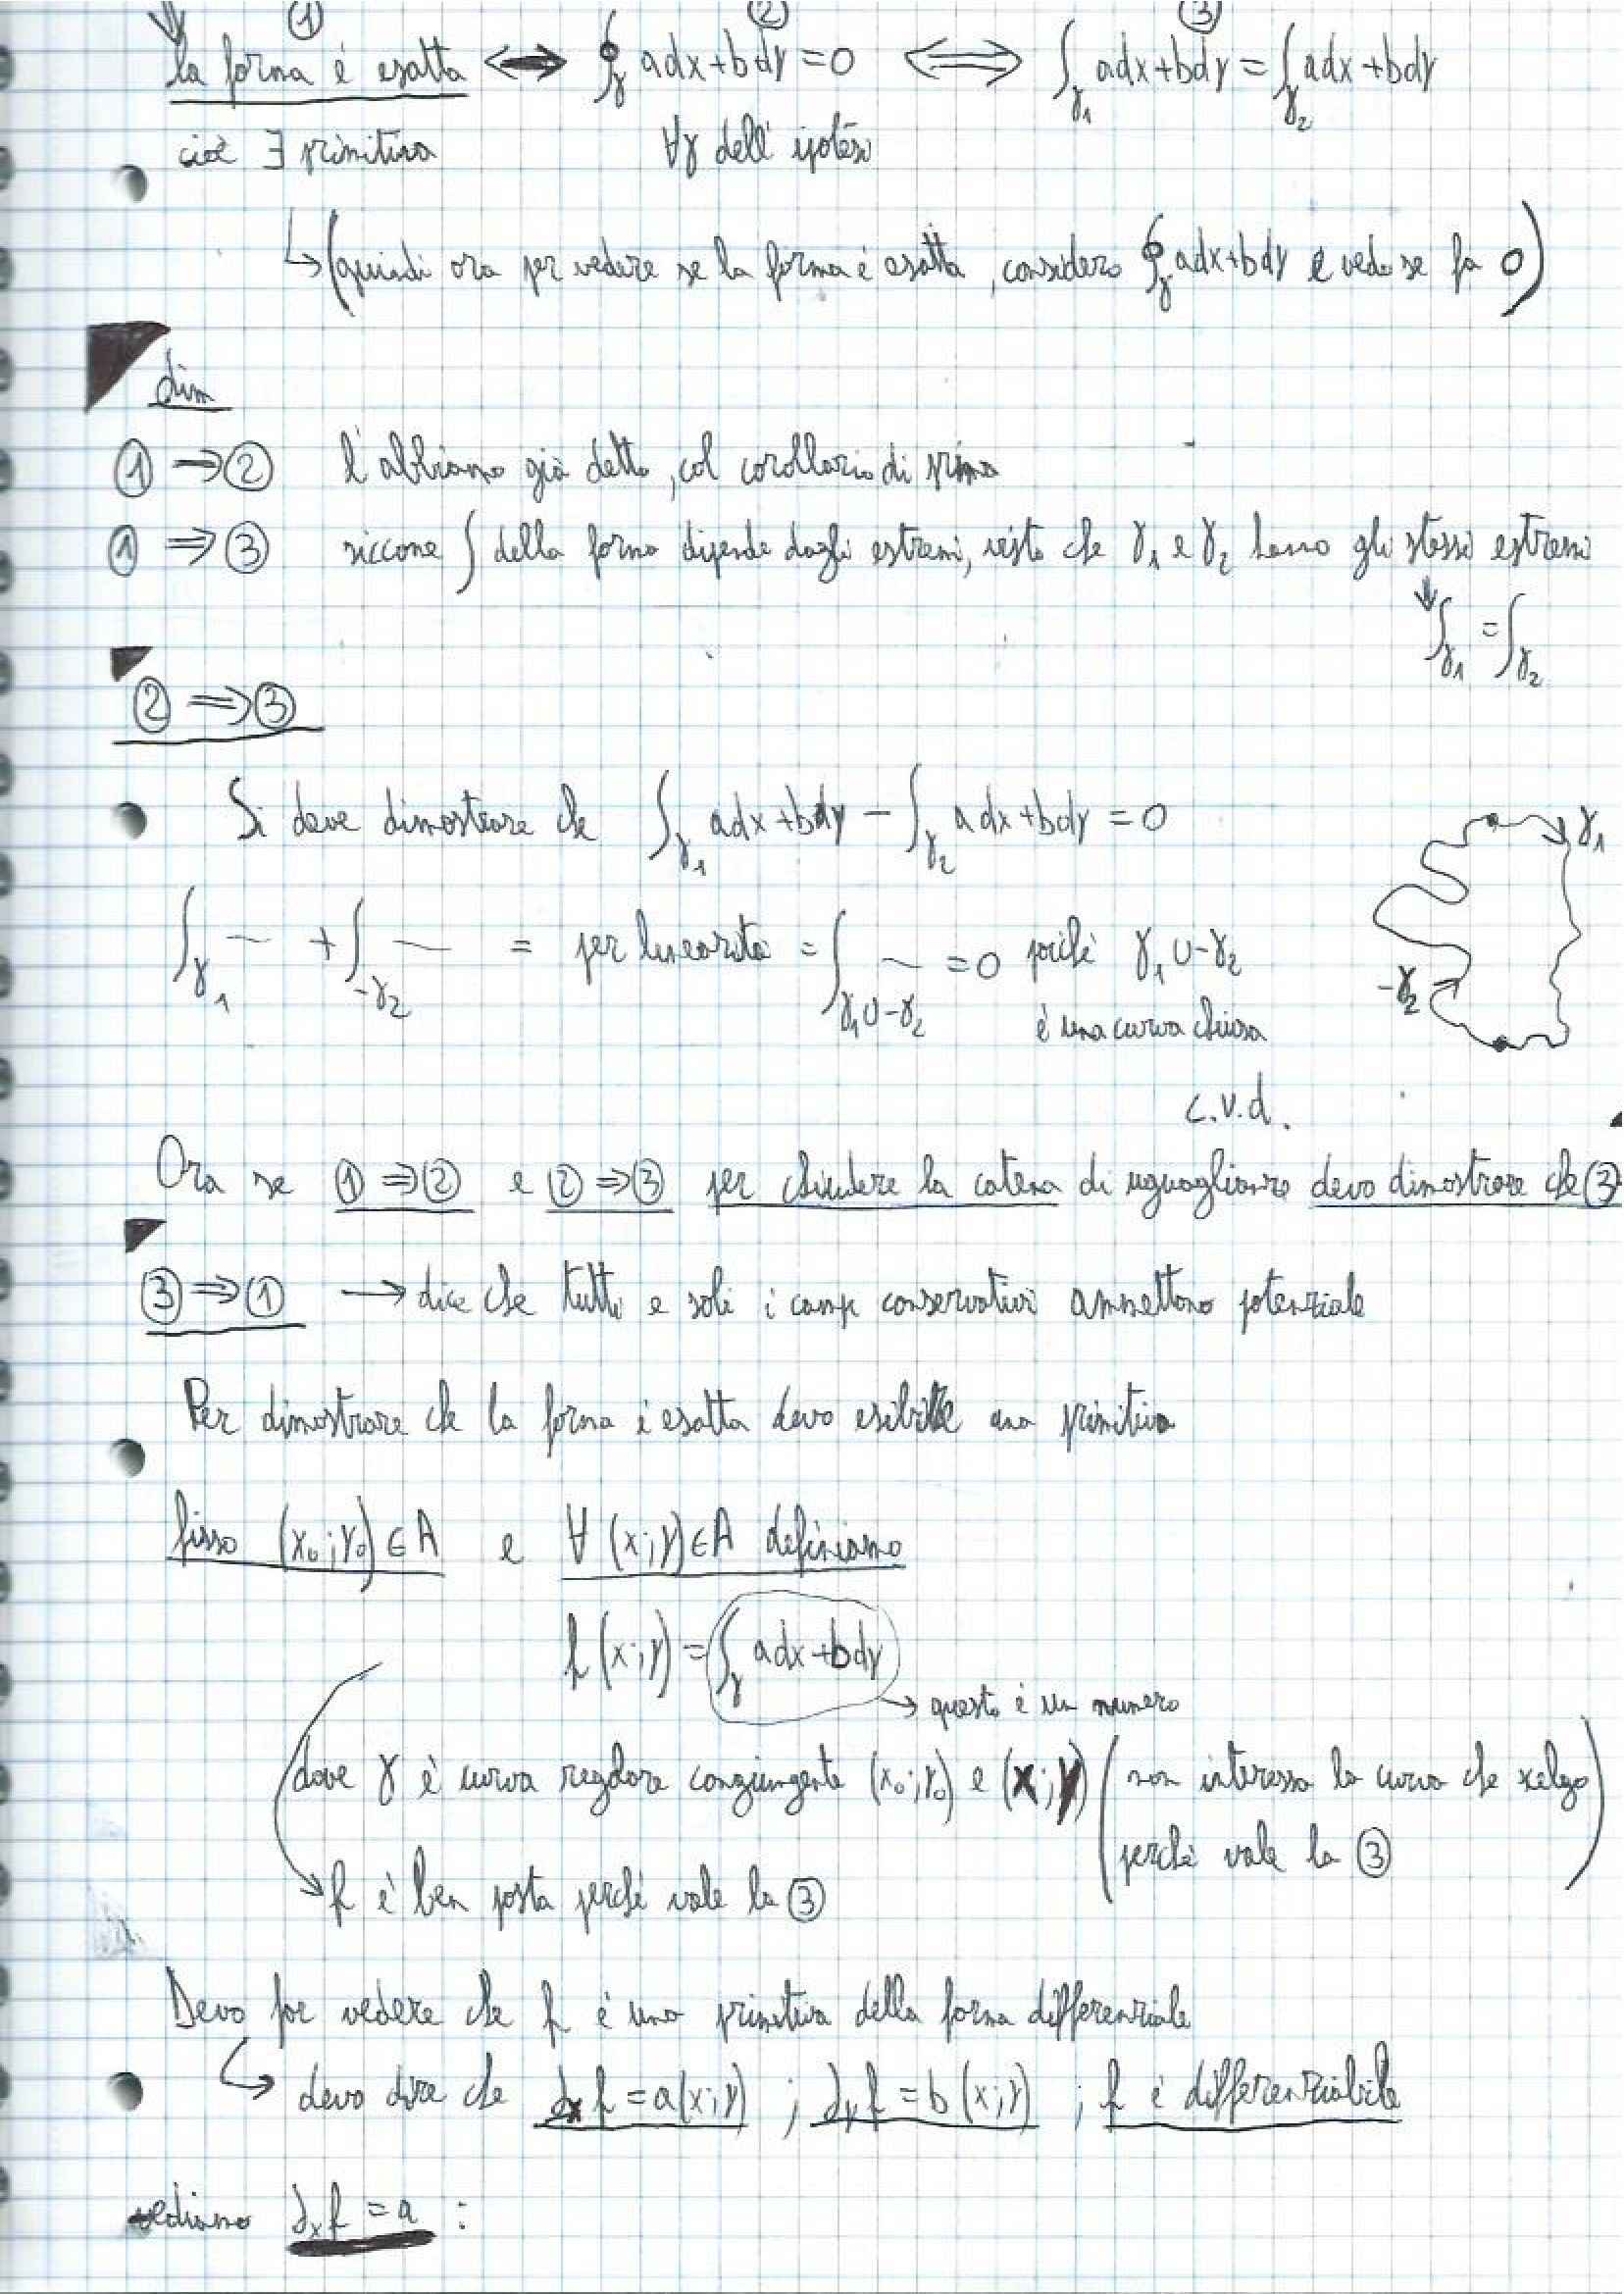 ① ② ③
la forma è esatta ⟺ ∮_γ adx+bdy=0 ⟺ ∫_γ₁ adx+bdy = ∫_γ₂ adx+bdy
cioè ∃ primitiva ∀γ dell'ipotesi
↳ (quindi ora per vedere se la forma è esatta, considero ∮_γ adx+bdy e vedo se fa 0)
dim
① ⇒ ② l'abbiamo già detto, col corollario di prima
① ⇒ ③ siccome ∫ della forma dipende dagli estremi, visto che γ₁ e γ₂ hanno gli stessi estremi
⇓ ∫_γ₁ = ∫_γ₂
② ⇒ ③
Si deve dimostrare che ∫_γ₁ adx+bdy − ∫_γ₂ adx+bdy = 0
γ₁
∫_γ₁ ~ + ∫_-γ₂ ~ = per linearità = ∫_γ₁∪-γ₂ ~ = 0 poiché γ₁ ∪ -γ₂
-γ₂
è una curva chiusa
c.v.d.
Ora se ① ⇒ ② e ② ⇒ ③ per chiudere la catena di uguaglianze devo dimostrare che ③
③ ⇒ ① → dice che tutti e soli i campi conservativi ammettono potenziale
Per dimostrare che la forma è esatta devo esibire una primitiva
fisso (x₀;y₀) ∈ A e ∀ (x;y) ∈ A definiamo
f(x;y) = ∫_γ adx+bdy
→ questo è un numero
dove γ è curva regolare congiungente (x₀;y₀) e (x;y) (non interessa la curva che scelgo
perché vale la ③)
f è ben posta perché vale la ③
Devo far vedere che f è una primitiva della forma differenziale
↳ devo dire che ∂ₓf = a(x;y) ; ∂ᵧf = b(x;y) ; f è differenziabile
vediamo ∂ₓf = a :